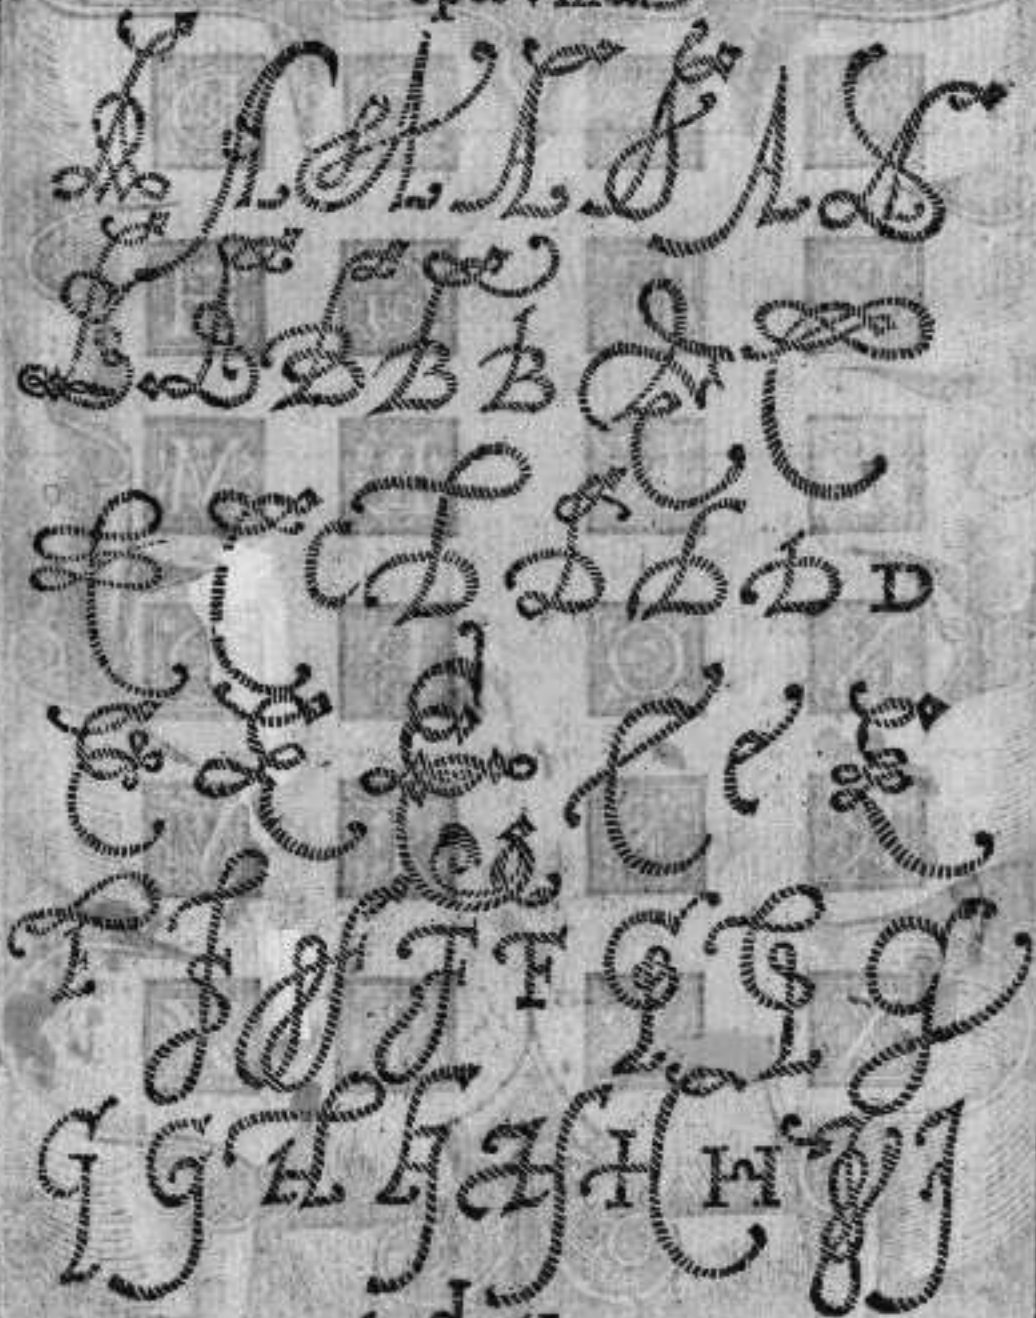 A A A A A A A
B B B B B C C
C C C D D D D D
E E E E E E
F F F F F G G G
G G H H H H H I I